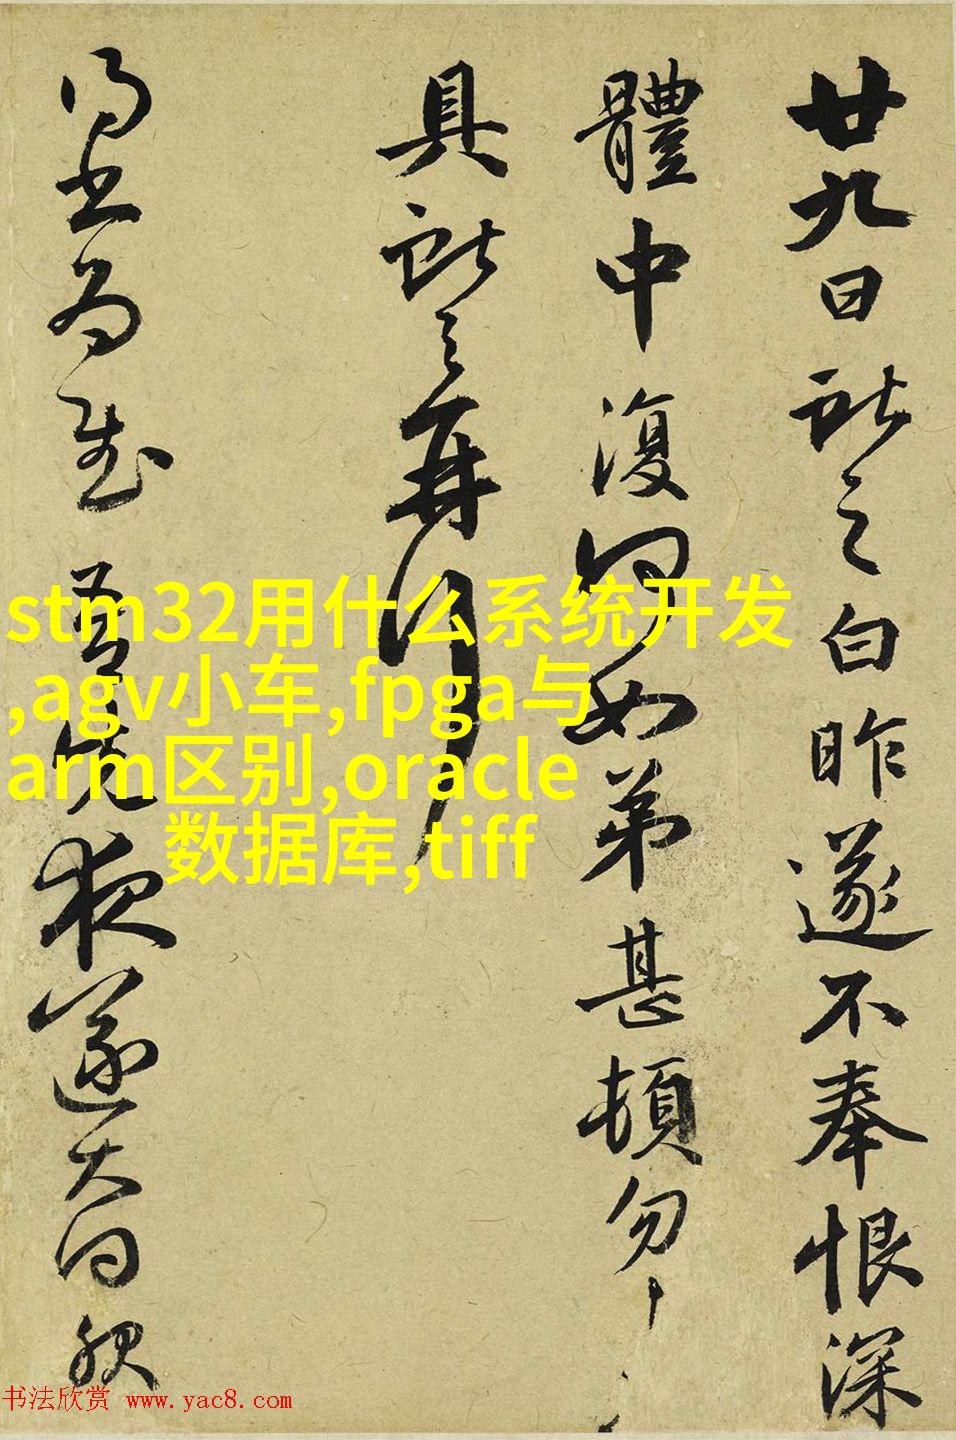 廿九日獻之白昨遂不奉恨深
體中復何如弟甚頓勿
具獻之再拜
得書為慰吾夜遂大
stm32用什么系统开发
,agv小车,fpga与
arm区别,oracle
数据库,tiff
书法欣赏 www.yac8.com